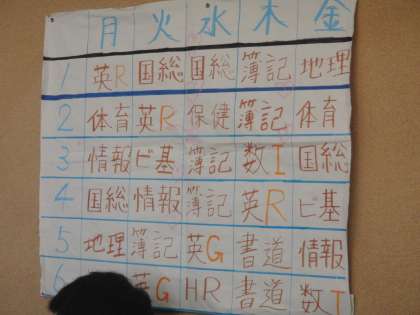 月 火 水 木 金
1 英R 国総 国総 簿記 地理
2 体育 英R 保健 簿記 体育
3 情報 ビ基 簿記 数I 国総
4 国総 情報 簿記 英R ビ基
5 地理 簿記 英G 書道 情報
6 英G HR 書道 数I